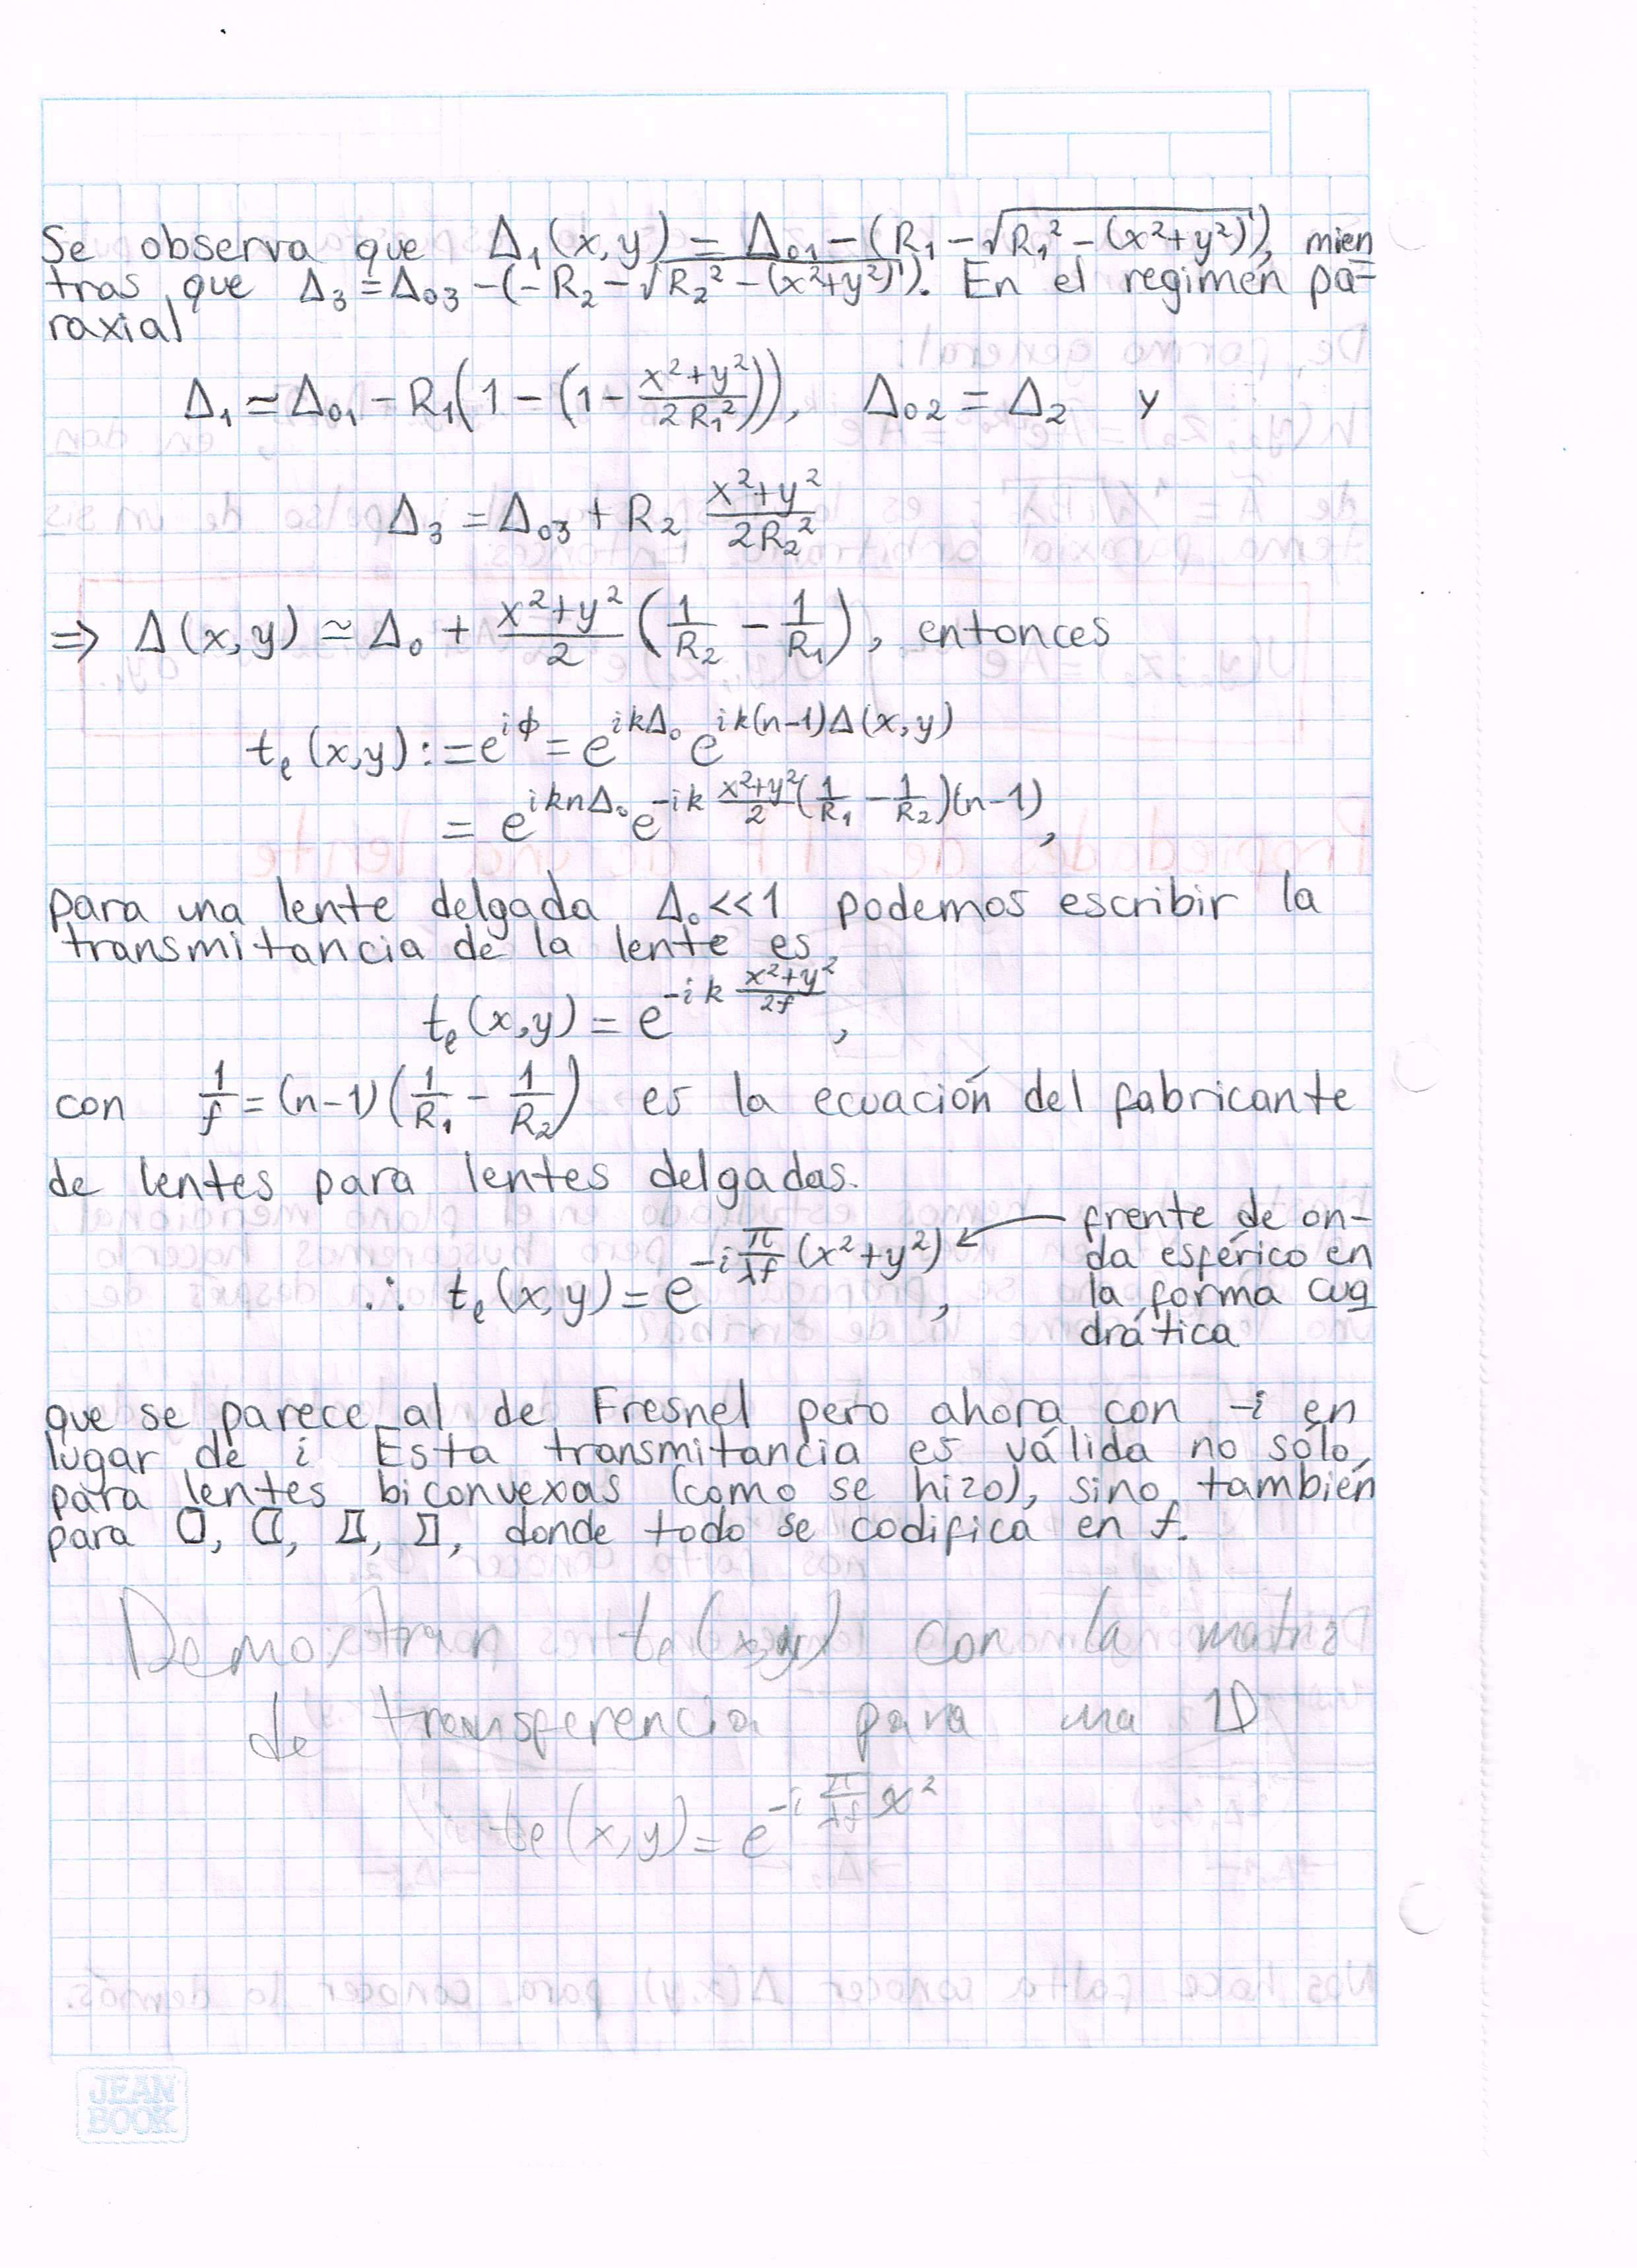 Se observa que Δ₁(x,y) = Δ₀₁ − (R₁ − √(R₁² − (x²+y²))), mien
tras que Δ₃ = Δ₀₃ − (−R₂ − √(R₂² − (x²+y²))). En el regimén pa-
raxial
Δ₁ ≃ Δ₀₁ − R₁(1 − (1 − (x²+y²)/(2R₁²))), Δ₀₂ = Δ₂ y
Δ₃ = Δ₀₃ + R₂ (x²+y²)/(2R₂²)
⇒ Δ(x,y) ≃ Δ₀ + (x²+y²)/2 (1/R₂ − 1/R₁), entonces
tₑ(x,y) := e^{iϕ} = e^{ikΔ₀} e^{ik(n−1)Δ(x,y)}
= e^{iknΔ₀} e^{−ik (x²+y²)/2 (1/R₁ − 1/R₂)(n−1)},
para una lente delgada Δ₀<<1 podemos escribir la
transmitancia de la lente es
tₑ(x,y) = e^{−ik (x²+y²)/(2f)},
con 1/f = (n−1)(1/R₁ − 1/R₂) es la ecuación del fabricante
de lentes para lentes delgadas.
∴ tₑ(x,y) = e^{−i π/(λf) (x²+y²)},
frente de on-
da esférico en
la forma cua
drática
que se parece al de Fresnel pero ahora con −i en
lugar de i Esta transmitancia es válida no sólo
para lentes biconvexas (como se hizo), sino también
para , , , , donde todo se codifica en f.
Demostrar tₑ(x,y) con la matriz
de transferencia para una 1D
tₑ(x,y) = e^{−i π/(λf) x²}
JEAN
BOOK